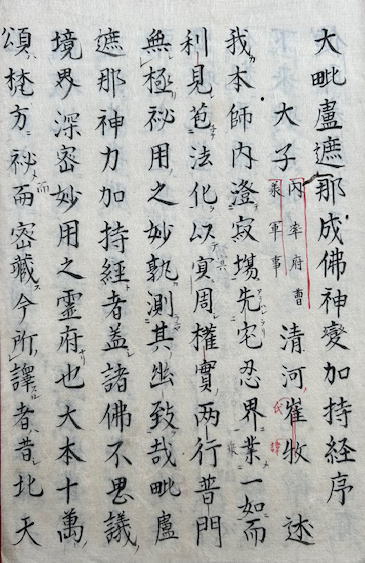 大毗盧遮那成佛神變加持經序
大子內率府曹叅軍事清河崔牧述
我本師內澄寂場先宅忍界業一如而
利見苞法化以冥周權實兩行普門
無極祕用之妙孰測其幽致哉毗盧
遮那神力加持經者蓋諸佛不思議
境界深密妙用之靈府也大本十萬
頌梵方祕而密藏今所譯者昔北天